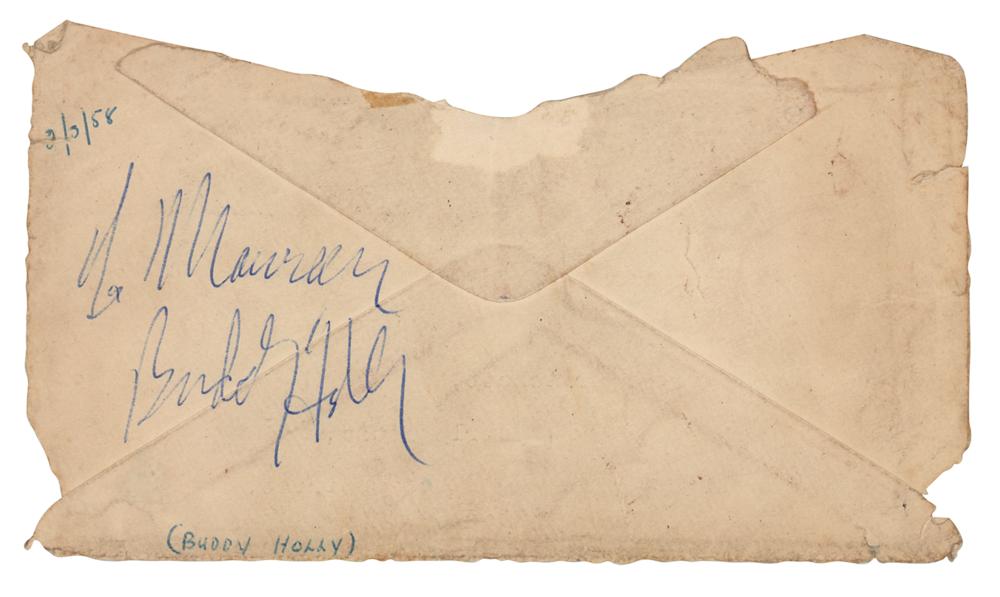 3/3/58
To Maureen
Buddy Holly
(BUDDY HOLLY)